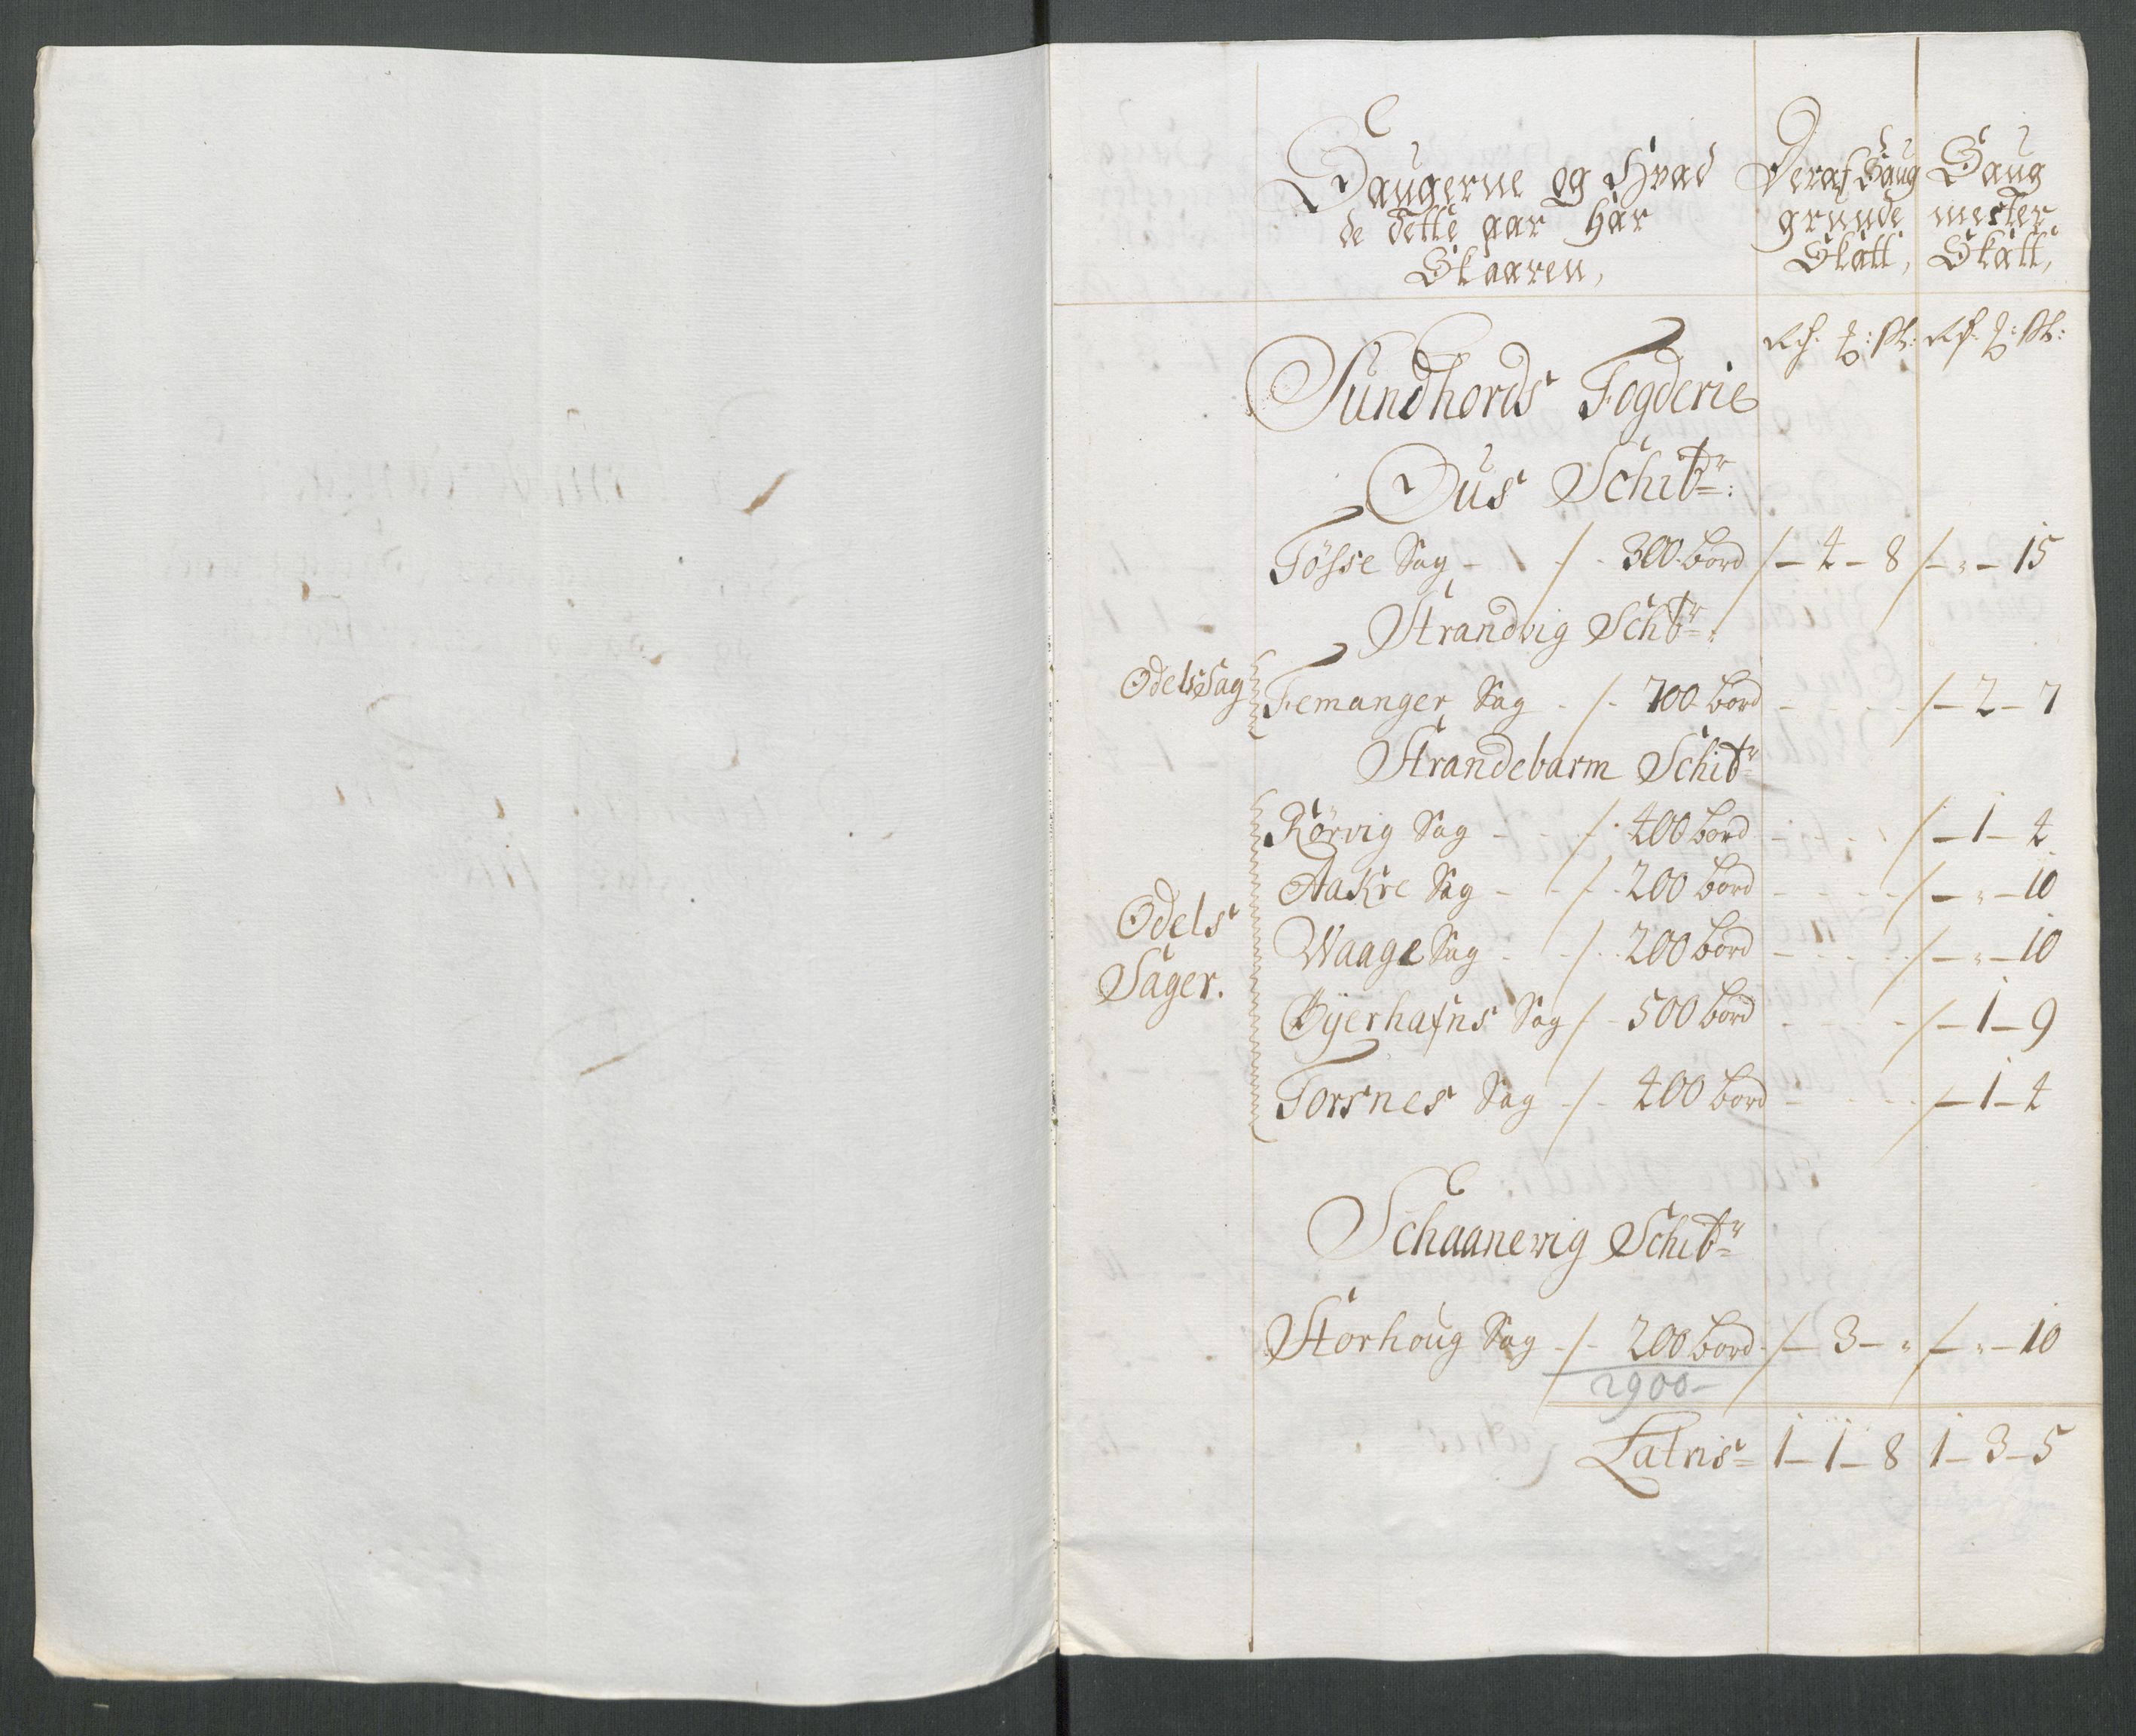 Saugerne og Hvad
de dette aar Har
Skaaren,
Deraf Saug
grunde
Skatt,
Saug
mester
Skatt,
Sundhords Fogderie
Ous Schibr:
Tösse Sag - / - 300 bord /- 4 - 8 /- " - 15
Strandvig Schbr:
Odels Sag
Femanger Sag - / - 700 bord - - - /- 2 - 7
Strandebarm Schibr
Odels
Sager.
Rörvig Sag - - / - 400 bord - - - /- 1 - 4
Aakre Sag - - / - 200 bord - - - /- " - 10
Waage Sag - - / - 200 bord - - - /- " - 10
Öyerhafns Sag / - 500 bord - - - /- 1 - 9
Torsnes Sag - / - 400 bord - - - /- 1 - 4
Schaanevig Schibr
Storhoug Sag - / - 200 bord - /- 3 - " /- " - 10
2900 -
Latris = 1 - 1 - 8 1 - 3 - 5